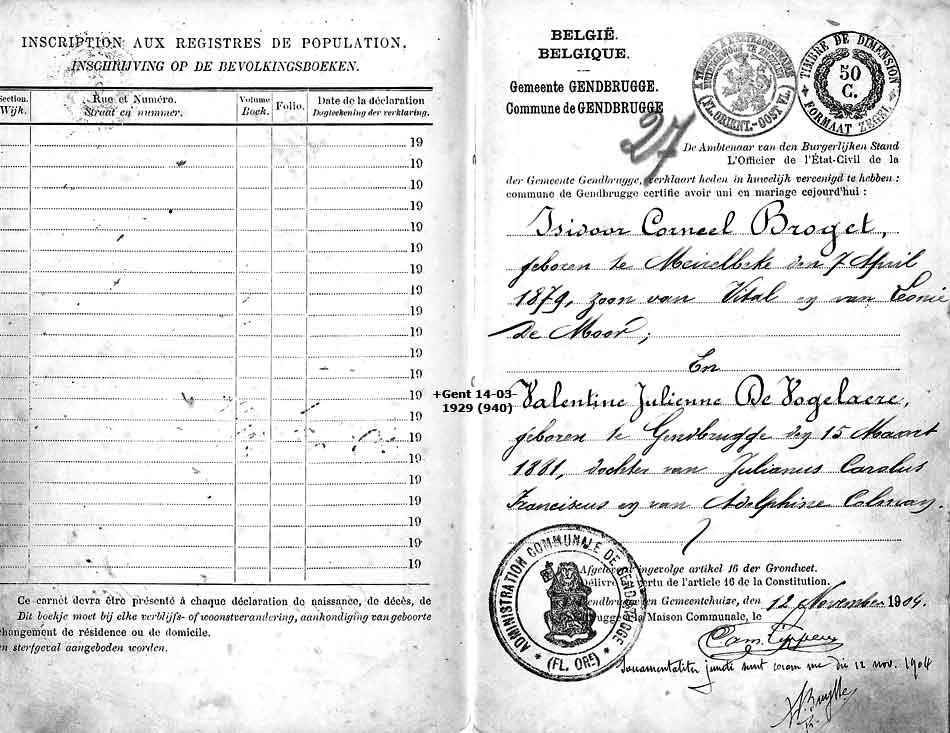 INSCRIPTION AUX REGISTRES DE POPULATION.
INSCHRIJVING OP DE BEVOLKINGSBOEKEN.
Section. Rue et Numéro. Volume Folio. Date de la déclaration
Wijk. Straat en nummer. Boek. Dagteekening der verklaring.
19
19
19
19
19
19
19
19
19
19
19
19
19
19
19
19
19
19
19
19
19
Ce carnet devra être présenté à chaque déclaration de naissance, de décès, de
Dit boekje moet bij elke verblijfs- of woonstverandering, aankondiging van geboorte
changement de résidence ou de domicile.
en sterfgeval aangeboden worden.
BELGIË.
BELGIQUE.
Gemeente GENDBRUGGE.
Commune de GENDBRUGGE
27
(FL. ORIENT.-OOST VL.)
TIMBRE DE DIMENSION
50
C.
FORMAAT ZEGEL
De Ambtenaar van den Burgerlijken Stand
L'Officier de l'État-Civil de la
der Gemeente Gendbrugge, verklaart heden in huwelijk vereenigd te hebben :
commune de Gendbrugge certifie avoir uni en mariage cejourd'hui :
Isidoor Corneel Broget,
geboren te Meirelbeke den 7 April
1879, zoon van Vital en van Leonie
De Moor;
En
+Gent 14-03-
1929 (940)
Valentine Julienne De Vogelaere,
geboren te Gendbrugge den 15 Maart
1881, dochter van Julianus Carolus
Franciscus en van Adolphine Colman.
ADMINISTRATION COMMUNALE DE GENDBRUGGE
(FL. ORE)
Afgeleverd ingevolge artikel 16 der Grondwet.
Délivré en vertu de l'article 16 de la Constitution.
Gendbrugge, en Gemeentehuize, den 12 November 1904.
Gendbrugge, à la Maison Communale, le
coram me die 12 nov. 1904